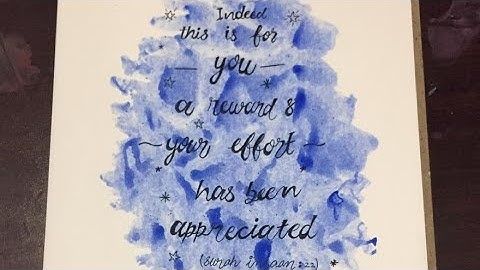 Indeed
this is for
you
a reward &
your effort
has been
appreciated
(Surah Insaan :22)